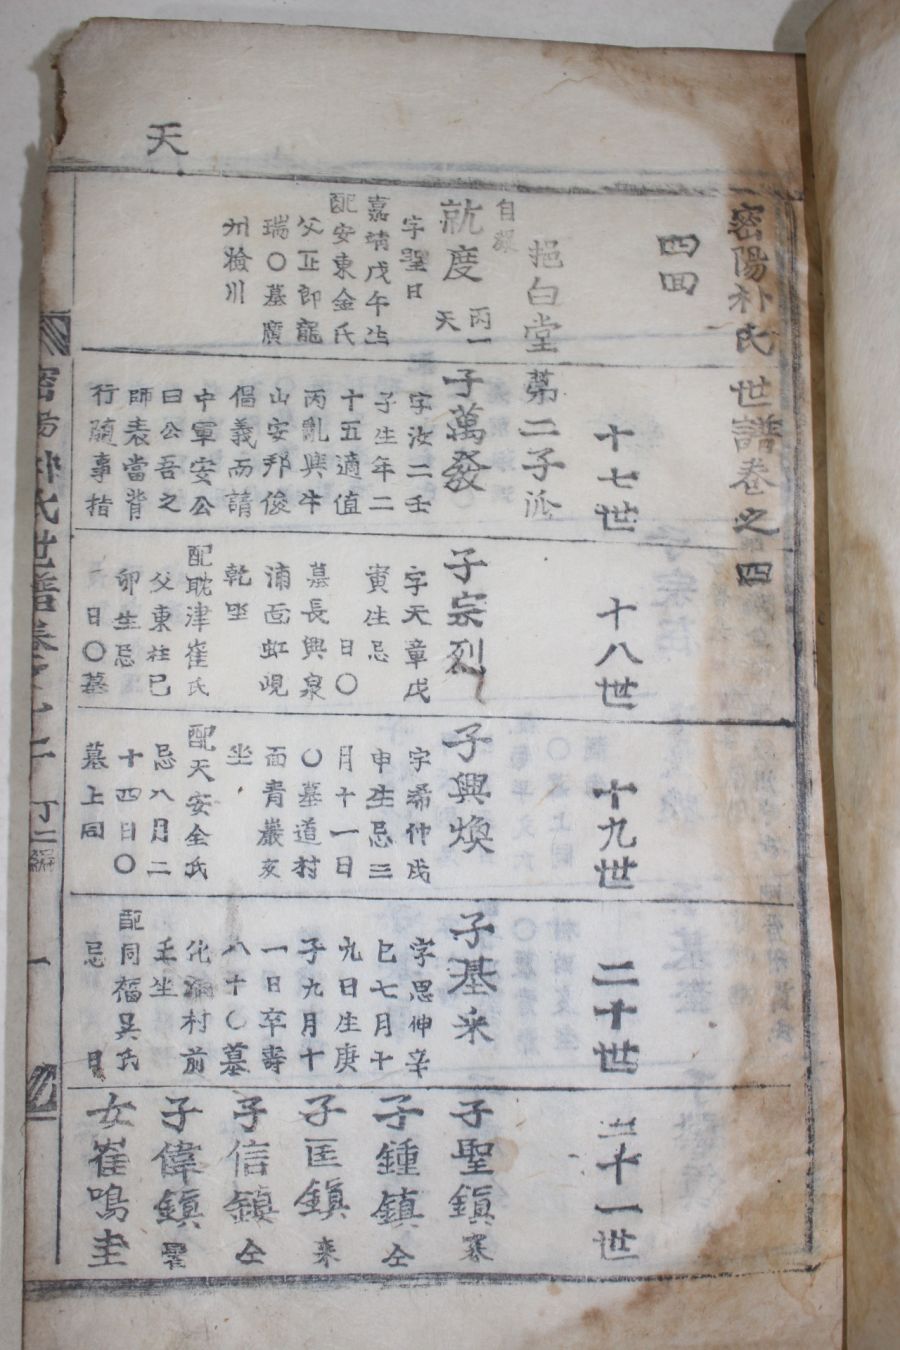 天
密陽朴氏世譜卷之四
四四
十七世
十八世
十九世
二十世
二十一世
挹白堂
第二子派
自
就度
丙一
天
字聖日
嘉靖戊午生
配安東金氏
父正郎龍
瑞〇墓廣
州檢川
子萬發
字汝二壬
子生年二
十五適值
丙亂與牛
山安邦俊
倡義而請
中軍安公
曰公吾之
師表當背
行隨事措
子宗烈
字天章戊
寅生忌
日〇
墓長興泉
浦面虹峴
乾坐
配耽津崔氏
父東柱己
卯生忌
日〇墓
子興煥
字希仲戊
申生忌三
月十一日
〇墓道村
面青巖亥
坐
配天安全氏
忌八月二
十四日〇
墓上同
子基采
字思伸辛
巳七月十
九日生庚
子九月十
一日卒壽
八十〇墓
化洞村前
壬坐
配同福吳氏
忌 日
子聖鎭 寒
子鍾鎭 仝
子匡鎭 來
子信鎭 仝
子偉鎭
女崔鳴圭
密陽朴氏世譜卷之
丁二編
一